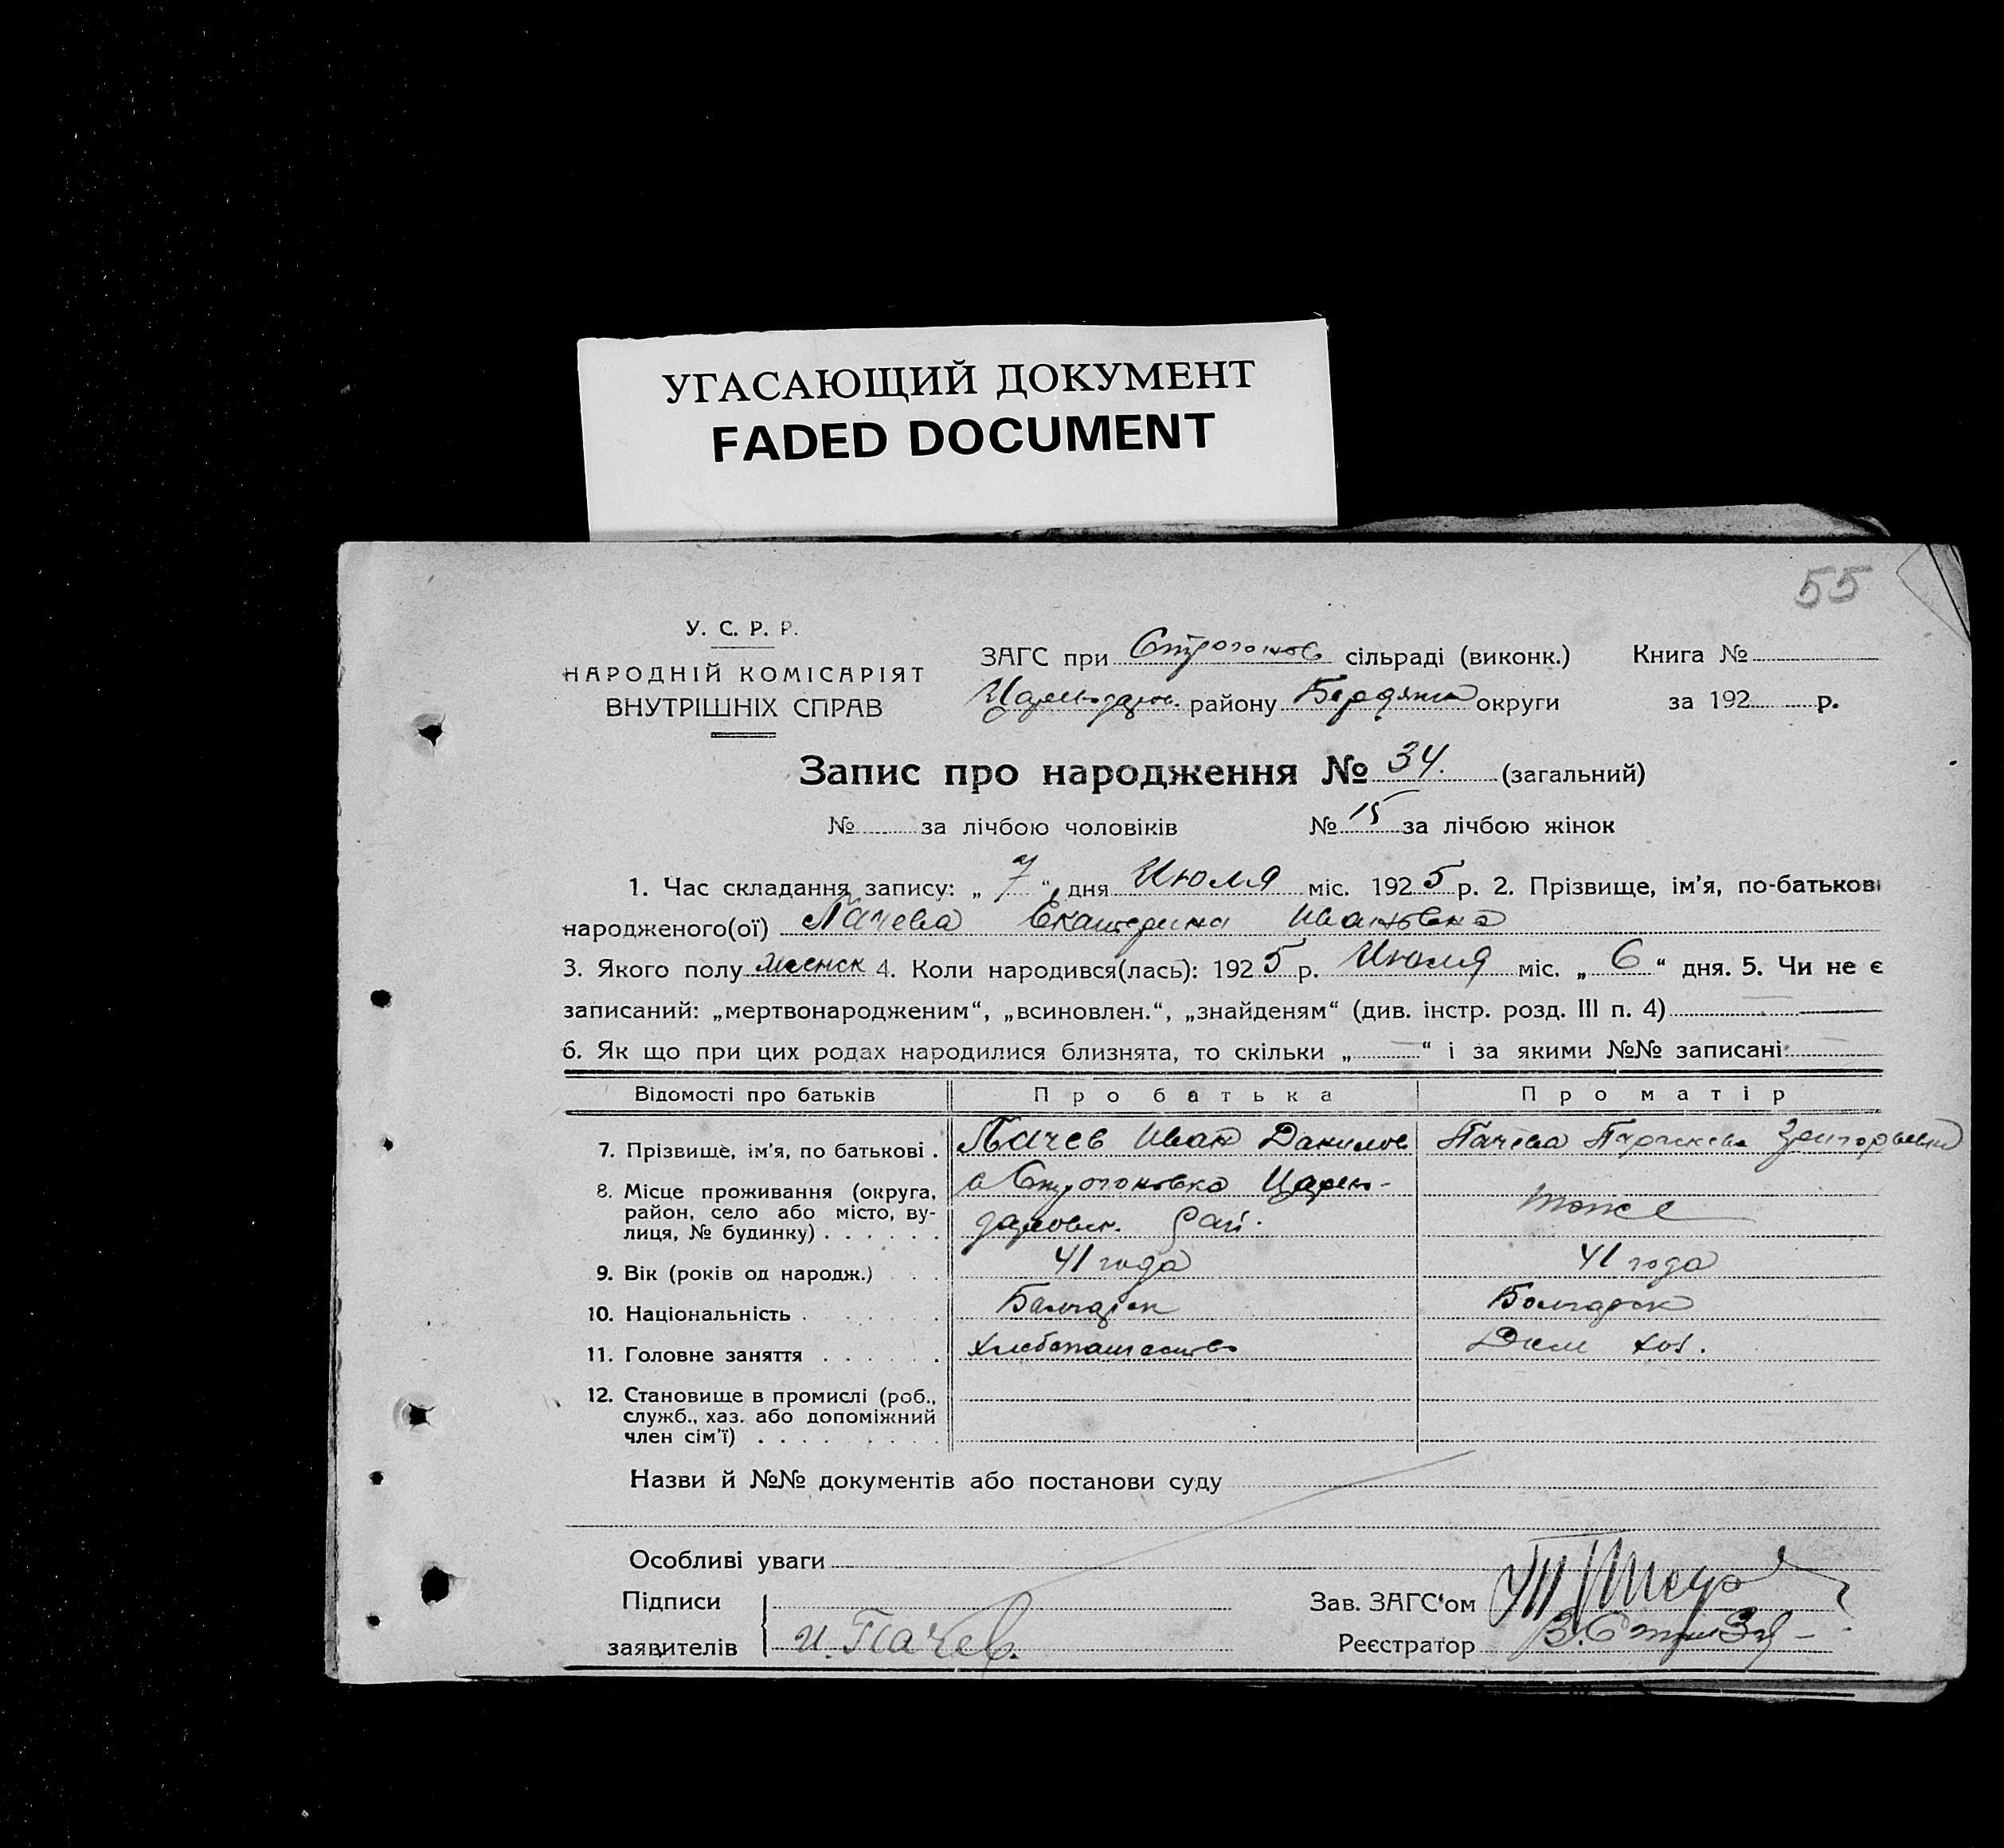 УГАСАЮЩИЙ ДОКУМЕНТ
FADED DOCUMENT
55
У. С. Р. Р.
НАРОДНІЙ КОМІСАРІЯТ
ВНУТРІШНІХ СПРАВ
ЗАГС при Строгонов сільраді (виконк.) Книга №
району Бердянск округи за 192 р.
Запис про народження № 34. (загальний)
№ за лічбою чоловіків № 15 за лічбою жінок
1. Час складання запису: „ 7 “ дня Июля міс. 1925 р. 2. Прізвище, ім’я, по-батькові
народженого(ої) Пачева Екатерина Ивановна
3. Якого полу женск 4. Коли народився(лась): 1925 р. Июля міс. „ 6 “ дня. 5. Чи не є
записаний: „мертвонародженим“, „всиновлен.“, „знайденям“ (див. інстр. розд. III п. 4)
6. Як що при цих родах народилися близнята, то скільки „ — “ і за якими №№ записані:
Відомості про батьків Про батька Про матір
7. Прізвище, ім’я, по батькові . Пачев Иван Данилов Пачева Параскева Григорьевна
8. Місце проживання (округа, район, село або місто, вулиця, № будинку) . . . . . . с Строгоновка Царе-
даровск. рай. тоже
9. Вік (років од народж.) . . 41 года 41 года
10. Національність . . . . . Болгарск Болгарск
11. Головне заняття . . . . . . хлебопашество Дом хоз.
12. Становище в промислі (роб., служб., хаз. або допоміжний член сім’ї) . . . . . . . . .
Назви й №№ документів або постанови суду
Особливі уваги
Підписи
заявителів И. Пачев.
Зав. ЗАГС‘ом
Реєстратор